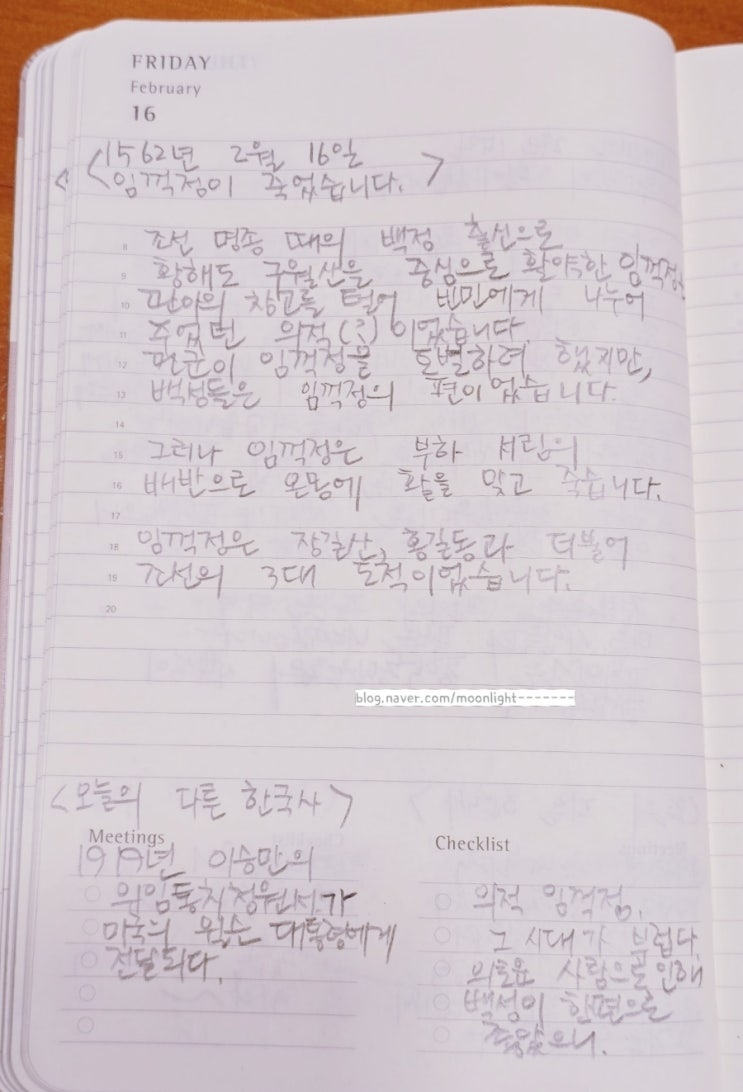 FRIDAY
February
16
<1562년 2월 16일
<임꺽정이 죽었습니다. >
8 조선 명종 때의 백정 출신으로
9 황해도 구월산을 중심으로 활약한 임꺽정은
10 관아의 창고를 털어 빈민에게 나누어
11 주었던 의적(?)이었습니다.
12 관군이 임꺽정을 토벌하려 했지만,
13 백성들은 임꺽정의 편이었습니다.
14
15 그러나 임꺽정은 부하 서림의
16 배반으로 온몸에 활을 맞고 죽습니다.
17
18 임꺽정은 장길산, 홍길동과 더불어
19 조선의 3대 도적이었습니다.
20
blog.naver.com/moonlight-------
<오늘의 다른 한국사>
Meetings
1919년 이승만의
위임통치청원서가
미국의 윌슨 대통령에게
전달되다.
Checklist
의적 임꺽정.
그 시대가 부럽다.
의로운 사람으로 인해
백성이 한편으로
좋았으니.